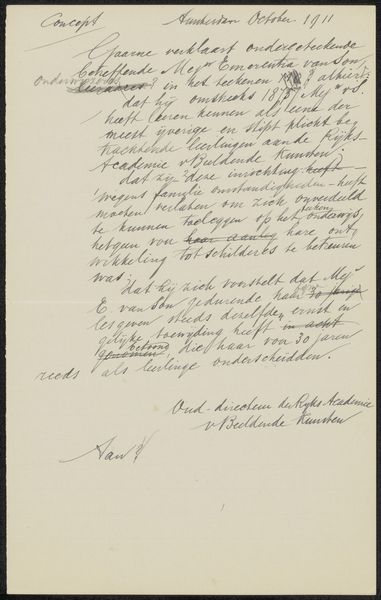 Concept Amsterdam October 1911
Gaarne verklaart ondergeteekende
betreffende Mejr Emerentia van Son,
onderwijzeres
leerares? in het teekenen ? alhier:
dat hij omstreeks 18 Mej v S.
heeft leeren kennen als eene der
meest ijverige en stipt plicht be
trachtende leerlingen aan de Rijks-
Academie v Beeldende Kunsten;
dat zij deze inrichting heeft
wegens familie omstandigheden heeft
moeten verlaten om zich onverdeeld
teeken
te kunnen toeleggen op het onderwijs,
hetgeen voor haar aanleg hare ont
wikkeling tot schilderes te betreuren
was;
dat hij zich voorstelt dat Mejr
E. van Son gedurende haar 30 jarig
lesgeven steeds dezelfden ernst en
gelijke toewijding heeft in acht
betoond
genomen, die haar voor 30 jaren
reeds als leerlinge onderscheidden.
Oud-directeur der Rijks Academie
v Beeldende Kunsten
Aan ?